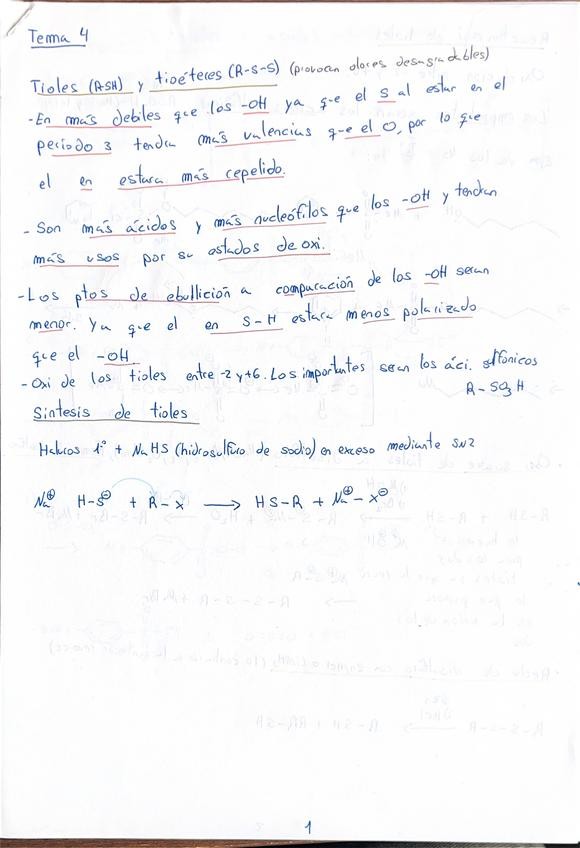 Tema 4
Tioles (RSH) y tioéteres (R-S-S) (provocan olores desagradables)
-En más debiles que los -OH ya que el S al estar en el
periodo 3 tendra más valencias que el O, por lo que
el en estara más repelido.
- Son más ácidos y más nucleófilos que los -OH y tendran
más usos por su estados de oxi.
-Los ptos de ebullición a compuración de los -OH seran
menor. Ya que el en S-H estara menos polarizado
que el -OH
- Oxi de los tioles entre -2 y +6. Los importantes seran los áci. sulfónicos
R-SO3H
Sintesis de tioles
Haluros 1º + NaHS (hidrosulfuro de sodio) en exceso mediante SN2
Na⊕ H-S⊖ + R-X ⟶ HS-R + Na⊕-X⊖
1